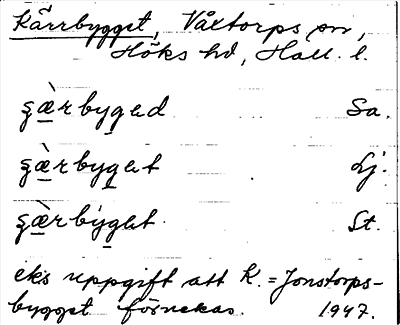 Kärrbygget, Våxtorps sn,
Höks hd, Hall. l.
ȿæ̀rbygəd Sa.
ȿæ̀rbygət Lj.
ȿæ̀rbýgət St.
eks uppgift att K. = Jonstorps-
bygget förnekas. 1947.